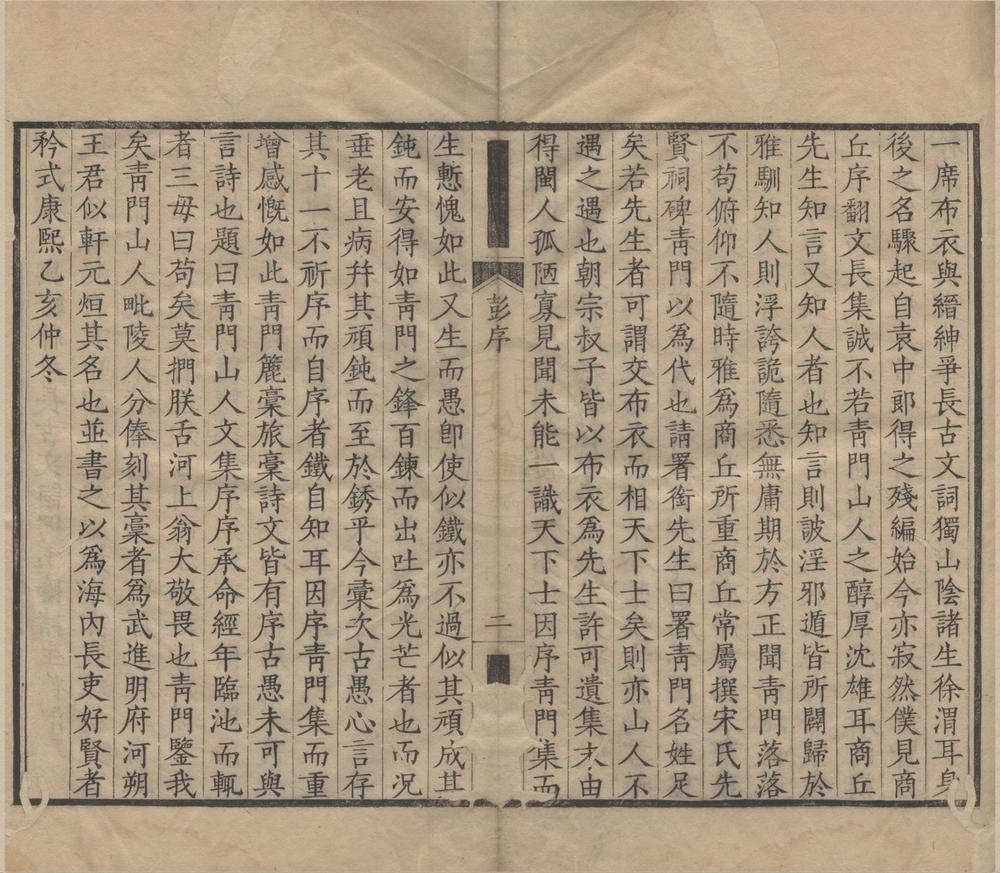 一席布衣與縉紳爭長古文詞獨山陰諸生徐渭耳身
後之名驟起自袁中郎得之殘編始今亦寂然僕見商
丘序翻文長集誠不若靑門山人之醇厚沈雄耳商丘
先生知言又知人者也知言則詖淫邪遁皆所闢歸於
雅馴知人則浮誇詭隨悉無庸期於方正聞靑門落落
不苟俯仰不隨時雅爲商丘所重商丘常屬撰宋氏先
賢祠碑靑門以爲代也請署銜先生曰署靑門名姓足
矣若先生者可謂交布衣而相天下士矣則亦山人不
遇之遇也朝宗叔子皆以布衣爲先生許可遺集末由
得閩人孤陋寡見聞未能一識天下士因序靑門集而
彭序
二
生慙愧如此又生而愚卽使似鐵亦不過似其頑成其
鈍而安得如靑門之鋒百鍊而出吐爲光芒者也而况
垂老且病幷其頑鈍而至於銹乎今彚次古愚心言存
其十一不祈序而自序者鐵自知耳因序靑門集而重
增感慨如此靑門簏稾旅稾詩文皆有序古愚未可與
言詩也題曰靑門山人文集序序承命經年臨池而輒
者三毋曰苟矣莫捫朕舌河上翁大敬畏也靑門鑒我
矣靑門山人毗陵人分俸刻其稾者爲武進明府河朔
王君似軒元烜其名也並書之以爲海內長吏好賢者
矜式康熙乙亥仲冬